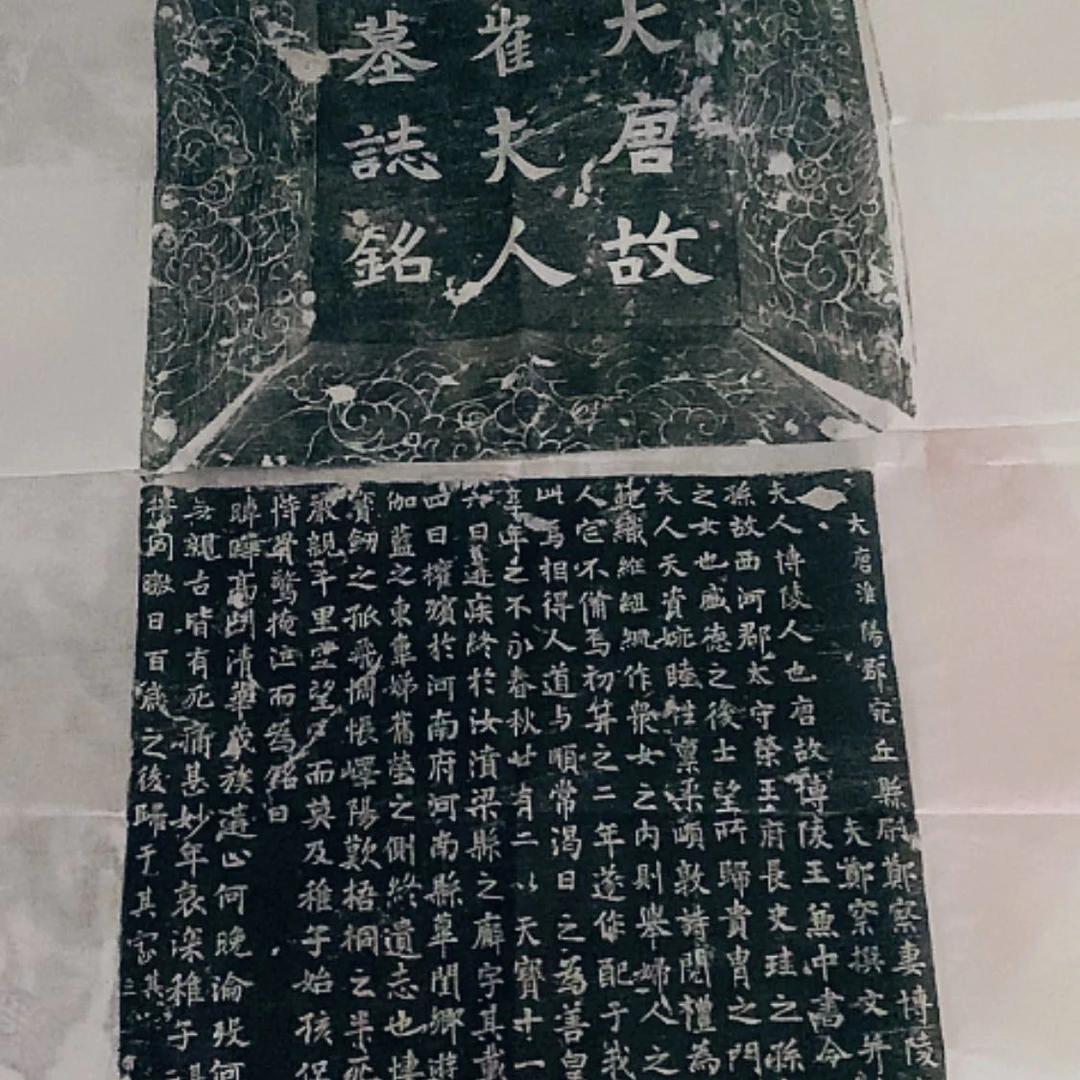 大唐故
崔夫人
墓誌銘
大唐淮陽郡宛丘縣尉鄭察妻博陵
夫鄭察撰文并
夫人博陵人也唐故博陵王兼中書令
孫故西河郡太守榮王府長史珪之孫
之女也盛德之後士望所歸貴胄之門
夫人天資婉睦性稟柔順敦詩閱禮為
織紝組紃作衆女之內則舉婦人之
人它不備焉初笄之二年遂作配于我
焉相得人道与順常渴日之為善皇
年之不永春秋廿有二以天寶十一
日遘疾終於汝濆梁縣之廨宇其載
四日權殯於河南府河南縣平閏鄉
伽藍之東車娣舊塋之側終遺志也
寶劒之孤飛惆悵嶧陽歎梧桐之半死
嚴親千里望而莫及稚子始孩
骨驚掩泣而為銘曰
高門清華茂族蓮何晚淪歿何
古皆有死痛甚妙年哀深稚子
同日百歲之後歸于其室其